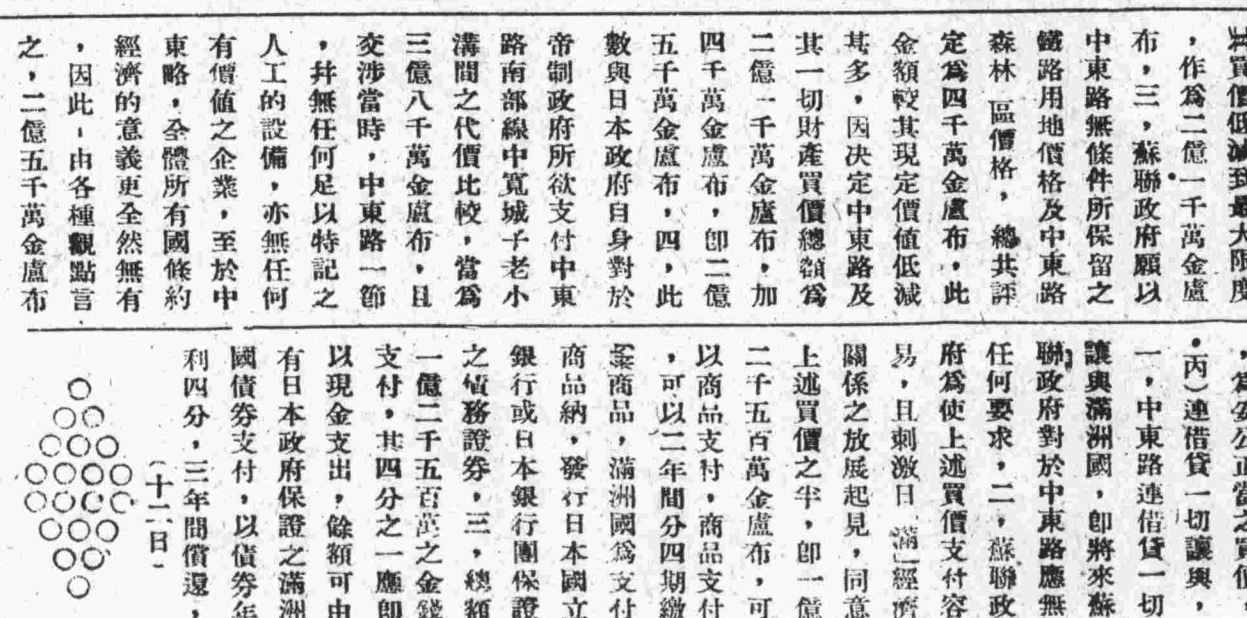 買價低減到最大限度
，作爲二億一千萬金盧
布，三，蘇聯政府願以
中東路無條件所保留之
鐵路用地價格及中東路
森林　區價格，　總共評
定爲四千萬金盧布，此
金額較其現定價値低減
其多，因決定中東路及
其一切財產買價總額爲
二億一千萬金廬布，加
四千萬金盧布，卽二億
五千萬金盧布，四，此
數與日本政府自身對於
帝制政府所欲支付中東
路南部線中寬城子老小
溝間之代價比較，當爲
三億八千萬金盧布，且
交涉當時，中東路一節
，幷無任何足以特記之
人工的設備，亦無任何
有價値之企業，至於中
東略，全體所有國條約
經濟的意義更全然無有
，因此，由各種觀點言
之，二億五千萬金盧布
，爲公正當之買價，
。丙）連借貸一切讓與，
一，中東路連借貸一切
讓與滿洲國，卽將來蘇
聯政府對於中東路應無
任何要求，二，蘇聯政
府爲使上述買價支付容
易，且刺激日　滿經濟
關係之放展起見，同意
上述買價之半，卽一億
二千五百萬金盧布，可
以商品支付，商品支付
，可以二年間分四期繳
商品，滿洲國爲支付
商品納，發行日本國立
銀行或日本銀行團保證
之債務證券，三，總額
一億二千五百萬之金錢
支付，其四分之一應卽
以現金支出，餘額可由
有日本政府保證之滿洲
國債券支付，以債券年
利四分，三年間償還，
（十二日）